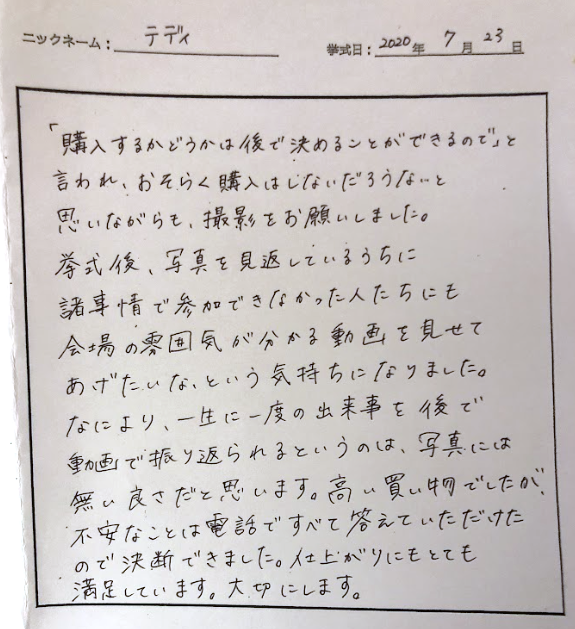 ニックネーム： テディ 挙式日： 2020 年 7 月 23 日
「購入するかどうかは後で決めることができるので」と
言われ、おそらく購入はしないだろうな、と
思いながらも、撮影をお願いしました。
挙式後、写真を見返しているうちに
諸事情で参加できなかった人たちにも
会場の雰囲気が分かる動画を見せて
あげたいな、という気持ちになりました。
なにより、一生に一度の出来事を後で
動画で振り返られるというのは、写真には
無い良さだと思います。高い買い物でしたが、
不安なことは電話ですべて答えていただけた
ので決断できました。仕上がりにもとても
満足しています。大切にします。